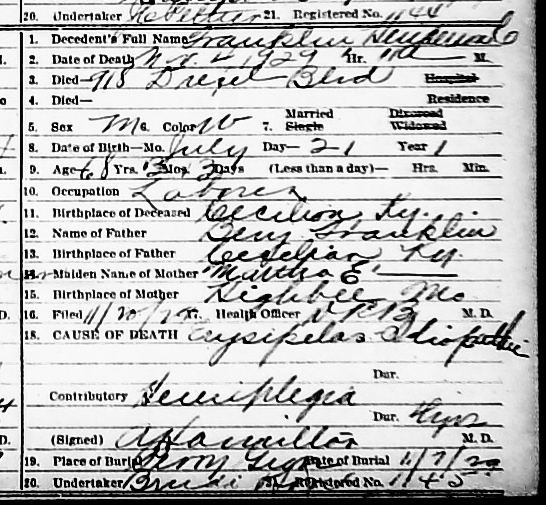 20. Undertaker 21. Registered No. 1144
1. Decedent's Full Name Franklin
2. Date of Death Nov. 4, 1929 Hr. M.
3. Died— 918 Drexel Blvd Hospital
4. Died— Residence
Married Divorced
5. Sex M 6. Color W 7. Single Widowed
8. Date of Birth—Mo. July Day— 21 Year 1
9. Age 68 Yrs. 3 Mos. Days (Less than a day)— Hrs. Min.
10. Occupation Laborer
11. Birthplace of Deceased Cecilian, Ky.
12. Name of Father Benj Franklin
13. Birthplace of Father Cecilian Ky.
14. Maiden Name of Mother Martha E.
15. Birthplace of Mother Highbee Mo
16. Filed 11/20/ 17. Health Officer M. D.
18. CAUSE OF DEATH Erysipelas Idiopathic
Dur.
Contributory Hemiplegia
Dur. yrs
(Signed) A Hamilton M. D.
19. Place of Burial Date of Burial 11/7/29
20. Undertaker Registered No. 1145